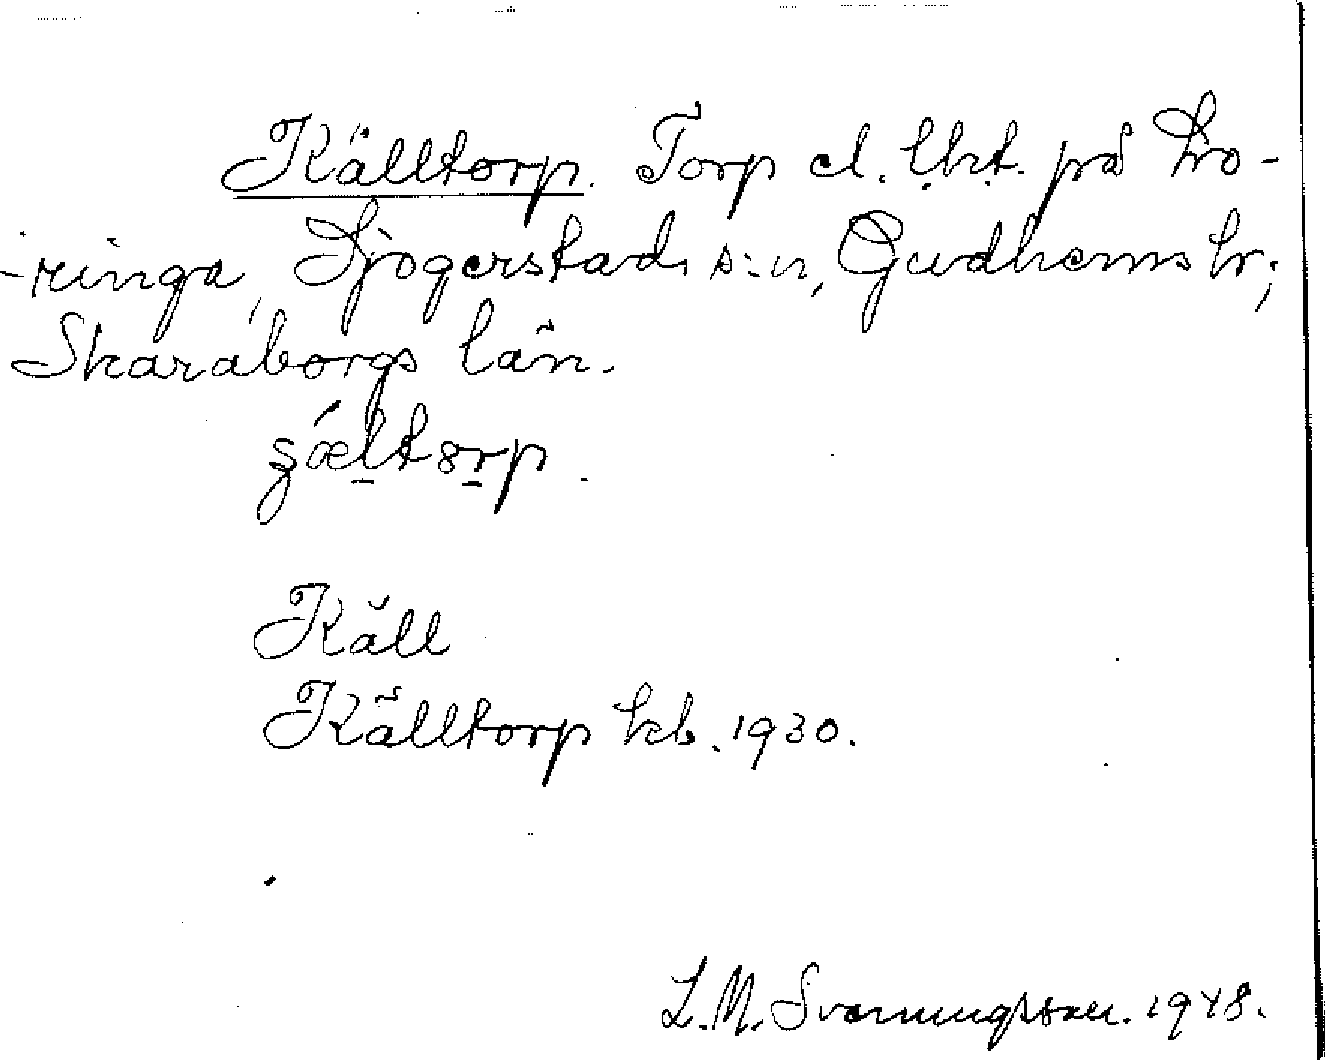 Källtorp. Torp el. lht. på Bro-
-ringa, Sjogerstads s:n, Gudhems hr;
Skaraborgs län.
Käll
Källtorp kb. 1930.
L.M. Svenungsson. 1948.